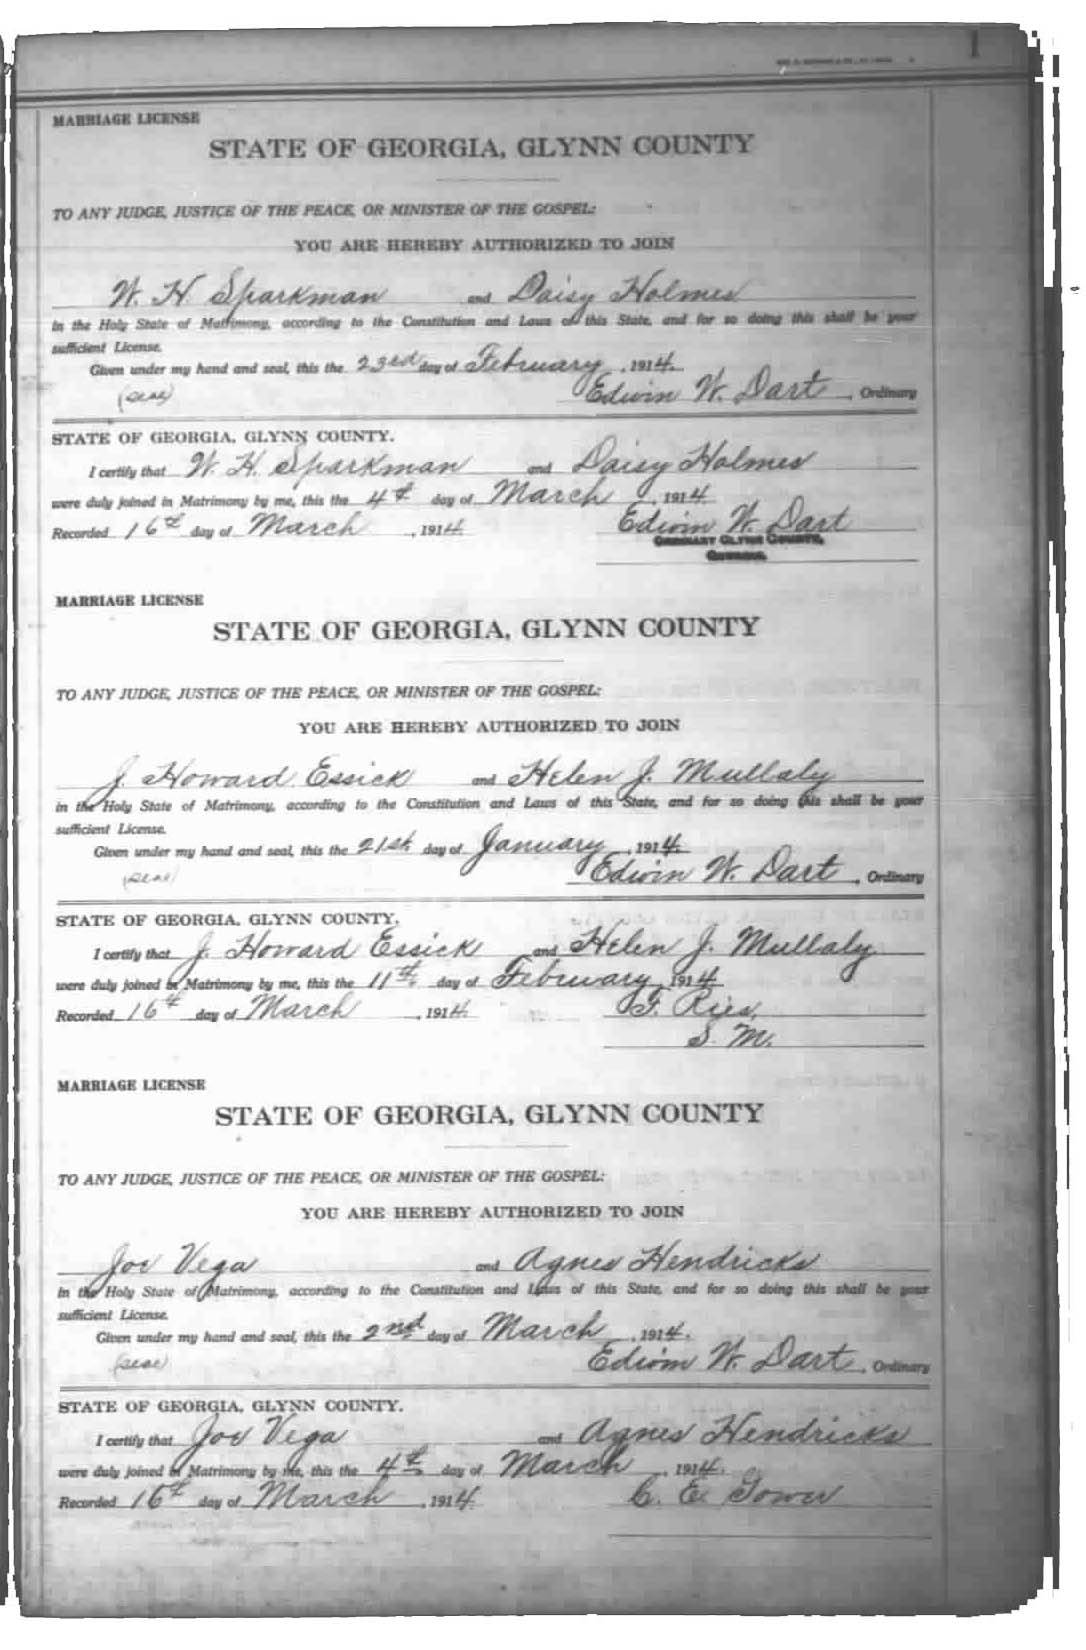 1
MARRIAGE LICENSE
STATE OF GEORGIA, GLYNN COUNTY
TO ANY JUDGE, JUSTICE OF THE PEACE, OR MINISTER OF THE GOSPEL:
YOU ARE HEREBY AUTHORIZED TO JOIN
W. H. Sparkman and Daisy Holmes
in the Holy State of Matrimony, according to the Constitution and Laws of this State, and for so doing this shall be your
sufficient License.
Given under my hand and seal, this the 23rd day of February, 1914.
(seal) Edwin W. Dart, Ordinary
STATE OF GEORGIA, GLYNN COUNTY.
I certify that W. H. Sparkman and Daisy Holmes
were duly joined in Matrimony by me, this the 4th day of March, 1914
Recorded 16th day of March, 1914. Edwin W. Dart
ORDINARY GLYNN COUNTY,
GEORGIA.
MARRIAGE LICENSE
STATE OF GEORGIA, GLYNN COUNTY
TO ANY JUDGE, JUSTICE OF THE PEACE, OR MINISTER OF THE GOSPEL:
YOU ARE HEREBY AUTHORIZED TO JOIN
J. Howard Essick and Helen J. Mullaly
in the Holy State of Matrimony, according to the Constitution and Laws of this State, and for so doing this shall be your
sufficient License.
Given under my hand and seal, this the 21st day of January, 1914.
(seal) Edwin W. Dart, Ordinary
STATE OF GEORGIA, GLYNN COUNTY.
I certify that J. Howard Essick and Helen J. Mullaly
were duly joined in Matrimony by me, this the 11th day of February, 1914
Recorded 16th day of March, 1914. F. Ries,
S. M.
MARRIAGE LICENSE
STATE OF GEORGIA, GLYNN COUNTY
TO ANY JUDGE, JUSTICE OF THE PEACE, OR MINISTER OF THE GOSPEL:
YOU ARE HEREBY AUTHORIZED TO JOIN
Joe Vega and Agnes Hendricks
in the Holy State of Matrimony, according to the Constitution and Laws of this State, and for so doing this shall be your
sufficient License.
Given under my hand and seal, this the 2nd day of March, 1914.
(seal) Edwin W. Dart, Ordinary
STATE OF GEORGIA, GLYNN COUNTY.
I certify that Joe Vega and Agnes Hendricks
were duly joined in Matrimony by me, this the 4th day of March, 1914.
Recorded 16th day of March, 1914. C. E. Gower